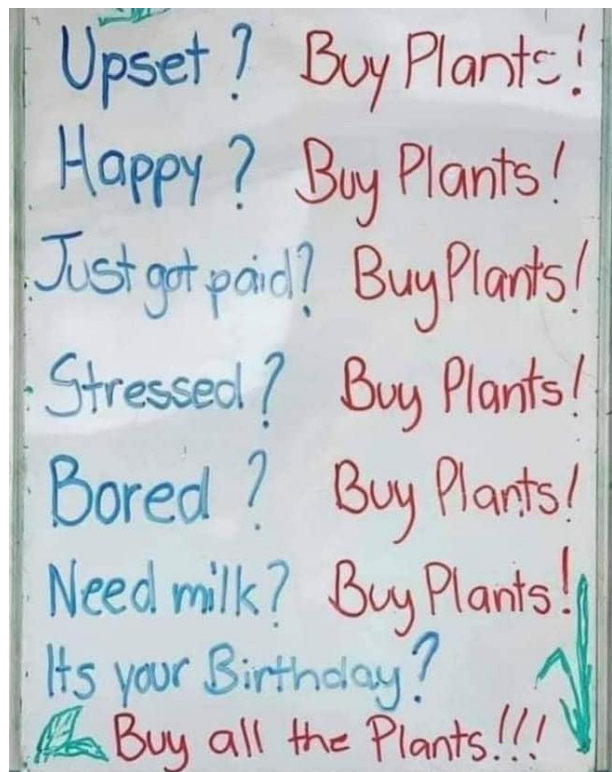 Upset? Buy Plants!
Happy? Buy Plants!
Just got paid? Buy Plants!
Stressed? Buy Plants!
Bored? Buy Plants!
Need milk? Buy Plants!
Its your Birthday?
Buy all the Plants!!!